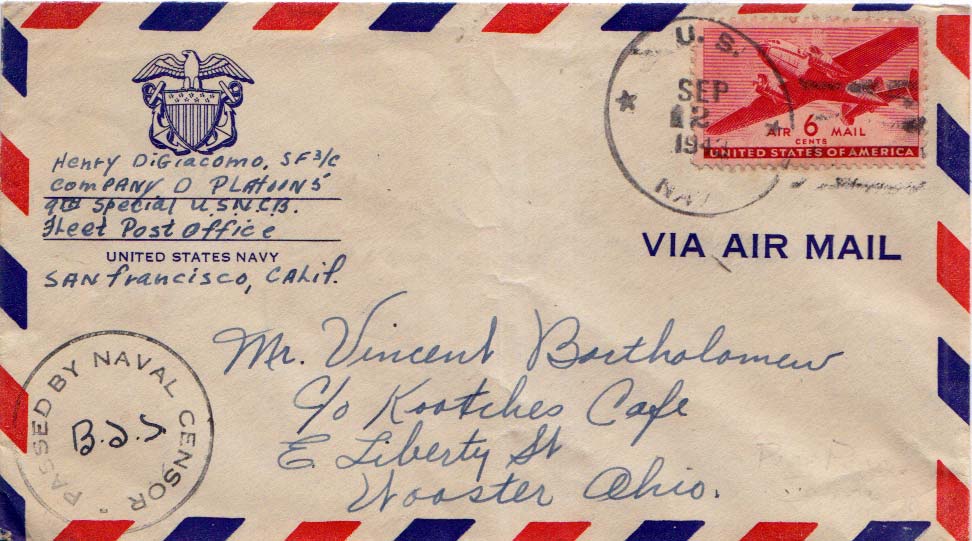 Henry DiGiacomo, SF 3/c
Company D Platoon 5
9th Special U.S.N.C.B.
Fleet Post Office
UNITED STATES NAVY
San Francisco, Calif.
U. S.
SEP
12
NAVY
AIR 6 MAIL
CENTS
UNITED STATES OF AMERICA
VIA AIR MAIL
Mr. Vincent Bartholomew
c/o Kootches Cafe
E Liberty St
Wooster Ohio.
PASSED BY NAVAL CENSOR